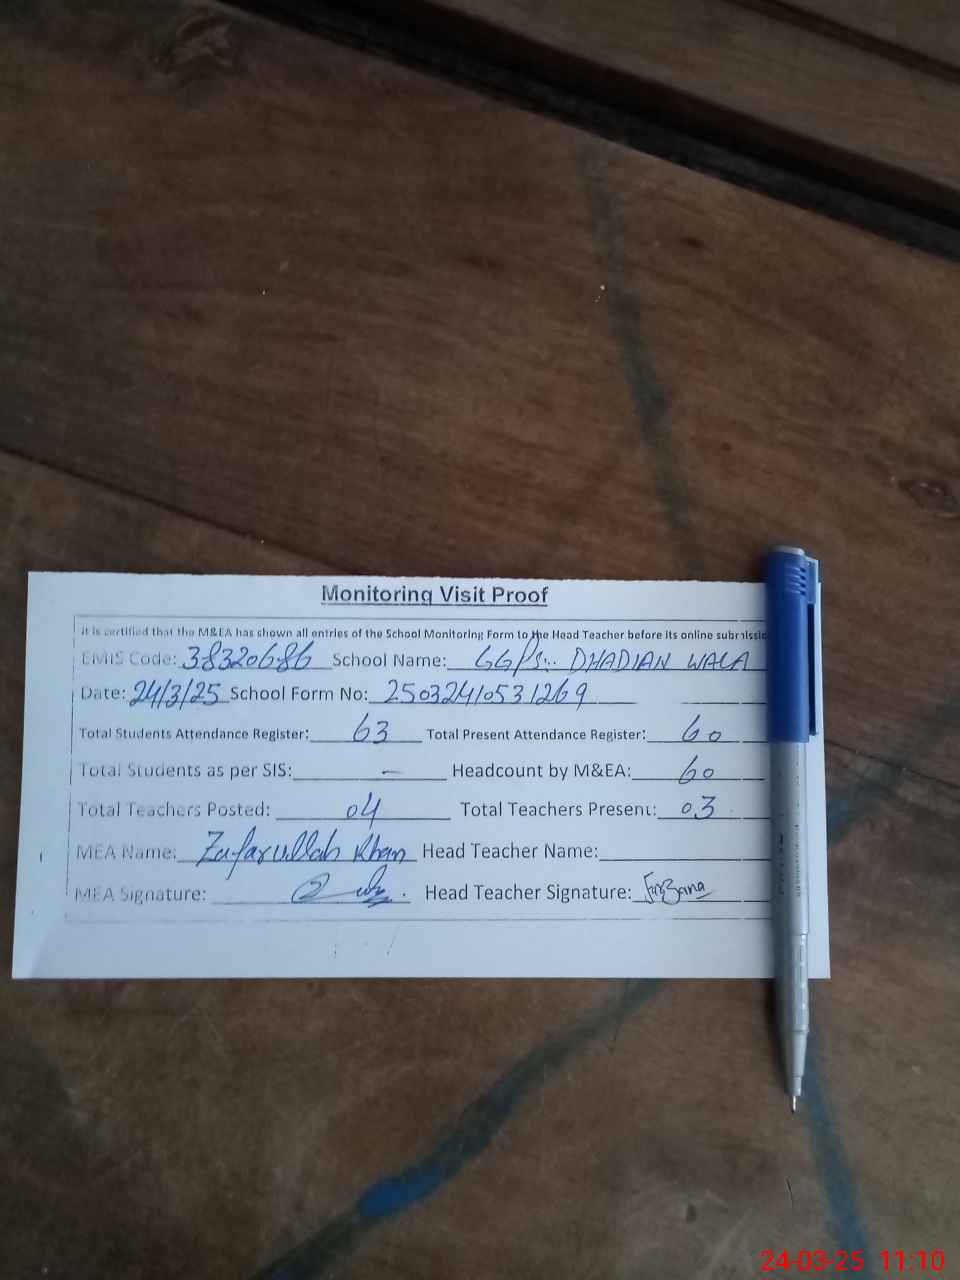 Monitoring Visit Proof
it is certified that the M&EA has shown all entries of the School Monitoring Form to the Head Teacher before its online submissio
EMIS Code: 38320686 School Name: GGP/S:. DHADIAN WALA
Date: 24/3/25 School Form No: 25032410531269
Total Students Attendance Register: 63 Total Present Attendance Register: 60
Total Students as per SIS: — Headcount by M&EA: 60
Total Teachers Posted: 04 Total Teachers Present: 03
MEA Name: Zafarullah Khan Head Teacher Name:
MEA Signature: Head Teacher Signature: Farzana
24-03-25 11:10